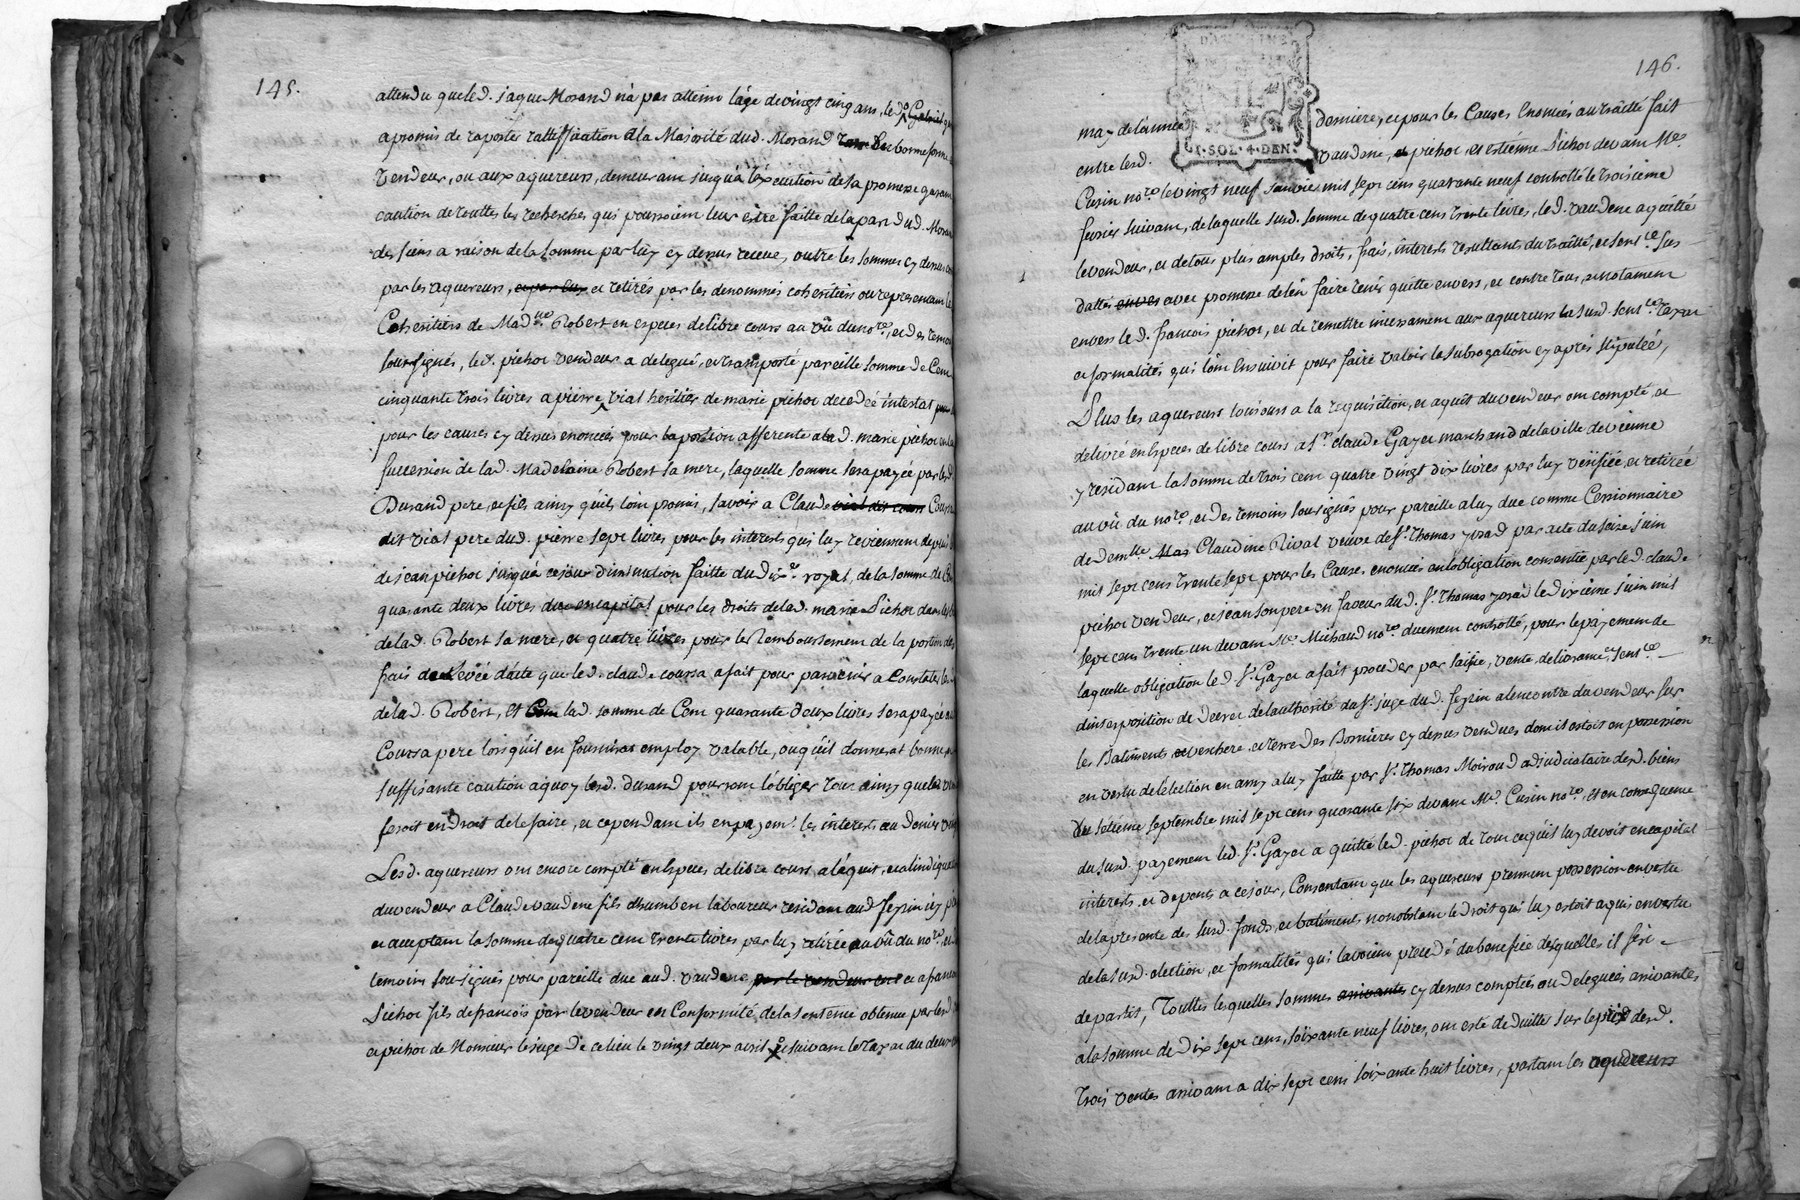 145.
attendu que led. jaque Morand n'a pas atteint l'âge de vingt cinq ans, led.
a promis de raporter rattiffication a la Majorité dud. Morand en bonne forme
vendeur, ou aux aquereurs, demeurant jusqu'a l'execution de sa promesse garant
caution de touttes les recherches qui pourroient leur estre faitte de la part dud. Moran
des siens a raison de la somme par luy cy dessus receue, outre les sommes cy dessus
par les aquereurs, et par eux et retirés par les denommés coheritiers ou representant les
Coheritiers de Mad.ne Robert en especes de libre cours au vû du no.re, et des temoins
soussignés, led. pichot vendeur a delegué, et transporté pareille somme de Cent
cinquante trois livres a pierre vial heritier de marie pichot decedée intestat
pour les causes cy dessus enoncées pour la portion afferente a lad. marie pichot en la
succession de lad. Madelaine Robert sa mere, laquelle somme sera payée par lesd.
Durand pere, et fils ainsy qu'ils l'ont promis, savoir a Claude vial dit cours Coursa
dit vial pere dud. pierre sept livres pour les interests qui luy reviennent depuis
de jean pichot jusqu'a ce jour diminution faitte du dix.e royal, de la somme de Cent
quarante deux livres du en capital pour les droits de lad. marie Pichot dans les
de lad. Robert sa mere, et quatre livres pour le Remboursement de la portion des
frais de levée d'acte que led. claude coursa a fait pour parvenir a Constater les
de lad. Robert, et Cent lad. somme de Cent quarante deux livres sera payée au
Coursa pere lorsqu'il en fournirat employ valable, ou qu'il donnerat bonne, et
suffisante caution a quoy lesd. durand pourront l'obliger tout ainsy que led. vendeur
seroit en droit de le faire, et cependant ils en payeni. les interests au denier vingt
Lesd. aquereurs ont encore compté en Especes de libre cours, a l'aquit, et a l'indiquation
du vendeur a Claude vaudene fils d'humbert laboureur residant aud. Serpin icy present
et acceptant la somme de quatre cent trente livres par luy retirée au vû du no.re, et
temoins soussignés pour pareille due aud. vaudene par le vendeur et a francois
Pichot fils de francois par le vendeur en Conformité de la sentence obtenue par lesd.
et pichot de Monsieur le juge de ce lieu le vingt deux avril et suivant le taxat du deux
146.
D
1·SOL·4·DEN.
may de l'année derniere, et pour les Causes Enoncées au traitté fait
entre lesd. vaudene, et pichot, et estienne Pichot devant M.e
Cusin no.re le vingt neuf janvier mil sept cens quarante neuf controllé le troisieme
fevrier suivant, de laquelle susd. somme de quatre cens trente livres, led. vaudene a quitté
le vendeur, et de tous plus amples droits, frais, interests resultants du traitté, et sent.ce sus
dattés envers avec promesse de l'en faire tenir quitte envers, et contre tous, et notament
envers led. francois pichot, et de remettre incessament aux aquereurs la susd. sent.ce taxat
et formalités qui l'ont Ensuivit pour faire valoir la subrogation cy après stipulée,
Plus les aquereurs toujours a la requisition, et aquit du vendeur ont compté, et
delivré en Especes de libre cours a S.r claude Gayet marchand de la ville de vienne
y residant la somme de trois cent quatre vingt dix livres par luy verifiée, et retirée
au vû du no.re, et des temoins soussignés pour pareille a luy due comme Cessionnaire
de dem.lle Mar Claudine Rival veuve de S.r Thomas yvrad par acte du seize juin
mil sept cens trente sept pour les Causes enoncées en l'obligation consentie par led. claude
pichot vendeur, et jean son pere en faveur dud. S.r Thomas yvrad le dixieme juin mil
sept cens trente un devant M.e Michaud no.re duement controllé, pour le payement de
laquelle obligation led. S.r Gayet a fait proceder par saisie, vente, delivrance, sent.ce
d'interposition de decret de l'authorité du S.r juge dud. Serpin a l'encontre du vendeur sur
les Batiments et verchere et terre des Bornieres cy dessus vendues dont il estoit en possession
en vertu de l'election en amy a luy faitte par S.r Thomas Moiroud adjudicataire desd. biens
du setieme septembre mil sept cens quarante six devant M.e Cusin no.re, et en consequence
du susd. payement led. S.r Gayet a quitté led. pichot de tout ce qu'il luy devoit en capital
interests et depens a ce jour, Consentant que les aquereurs prennent possession en vertu
de la presente des susd. fonds, et batiments nonobstant le droit qui luy estoit aquis en vertu
de la susd. election, et formalités qui l'avoient precedé du benefice desquelles il s'est
departis, Touttes lesquelles sommes arrivantes cy dessus comptées ou deleguées arrivantes
a la somme de dix sept cens, soixante neuf livres, ont esté deduittes sur le prix desd.
trois ventes arrivant a dix sept cens soixante huit livres, partant les aquereurs